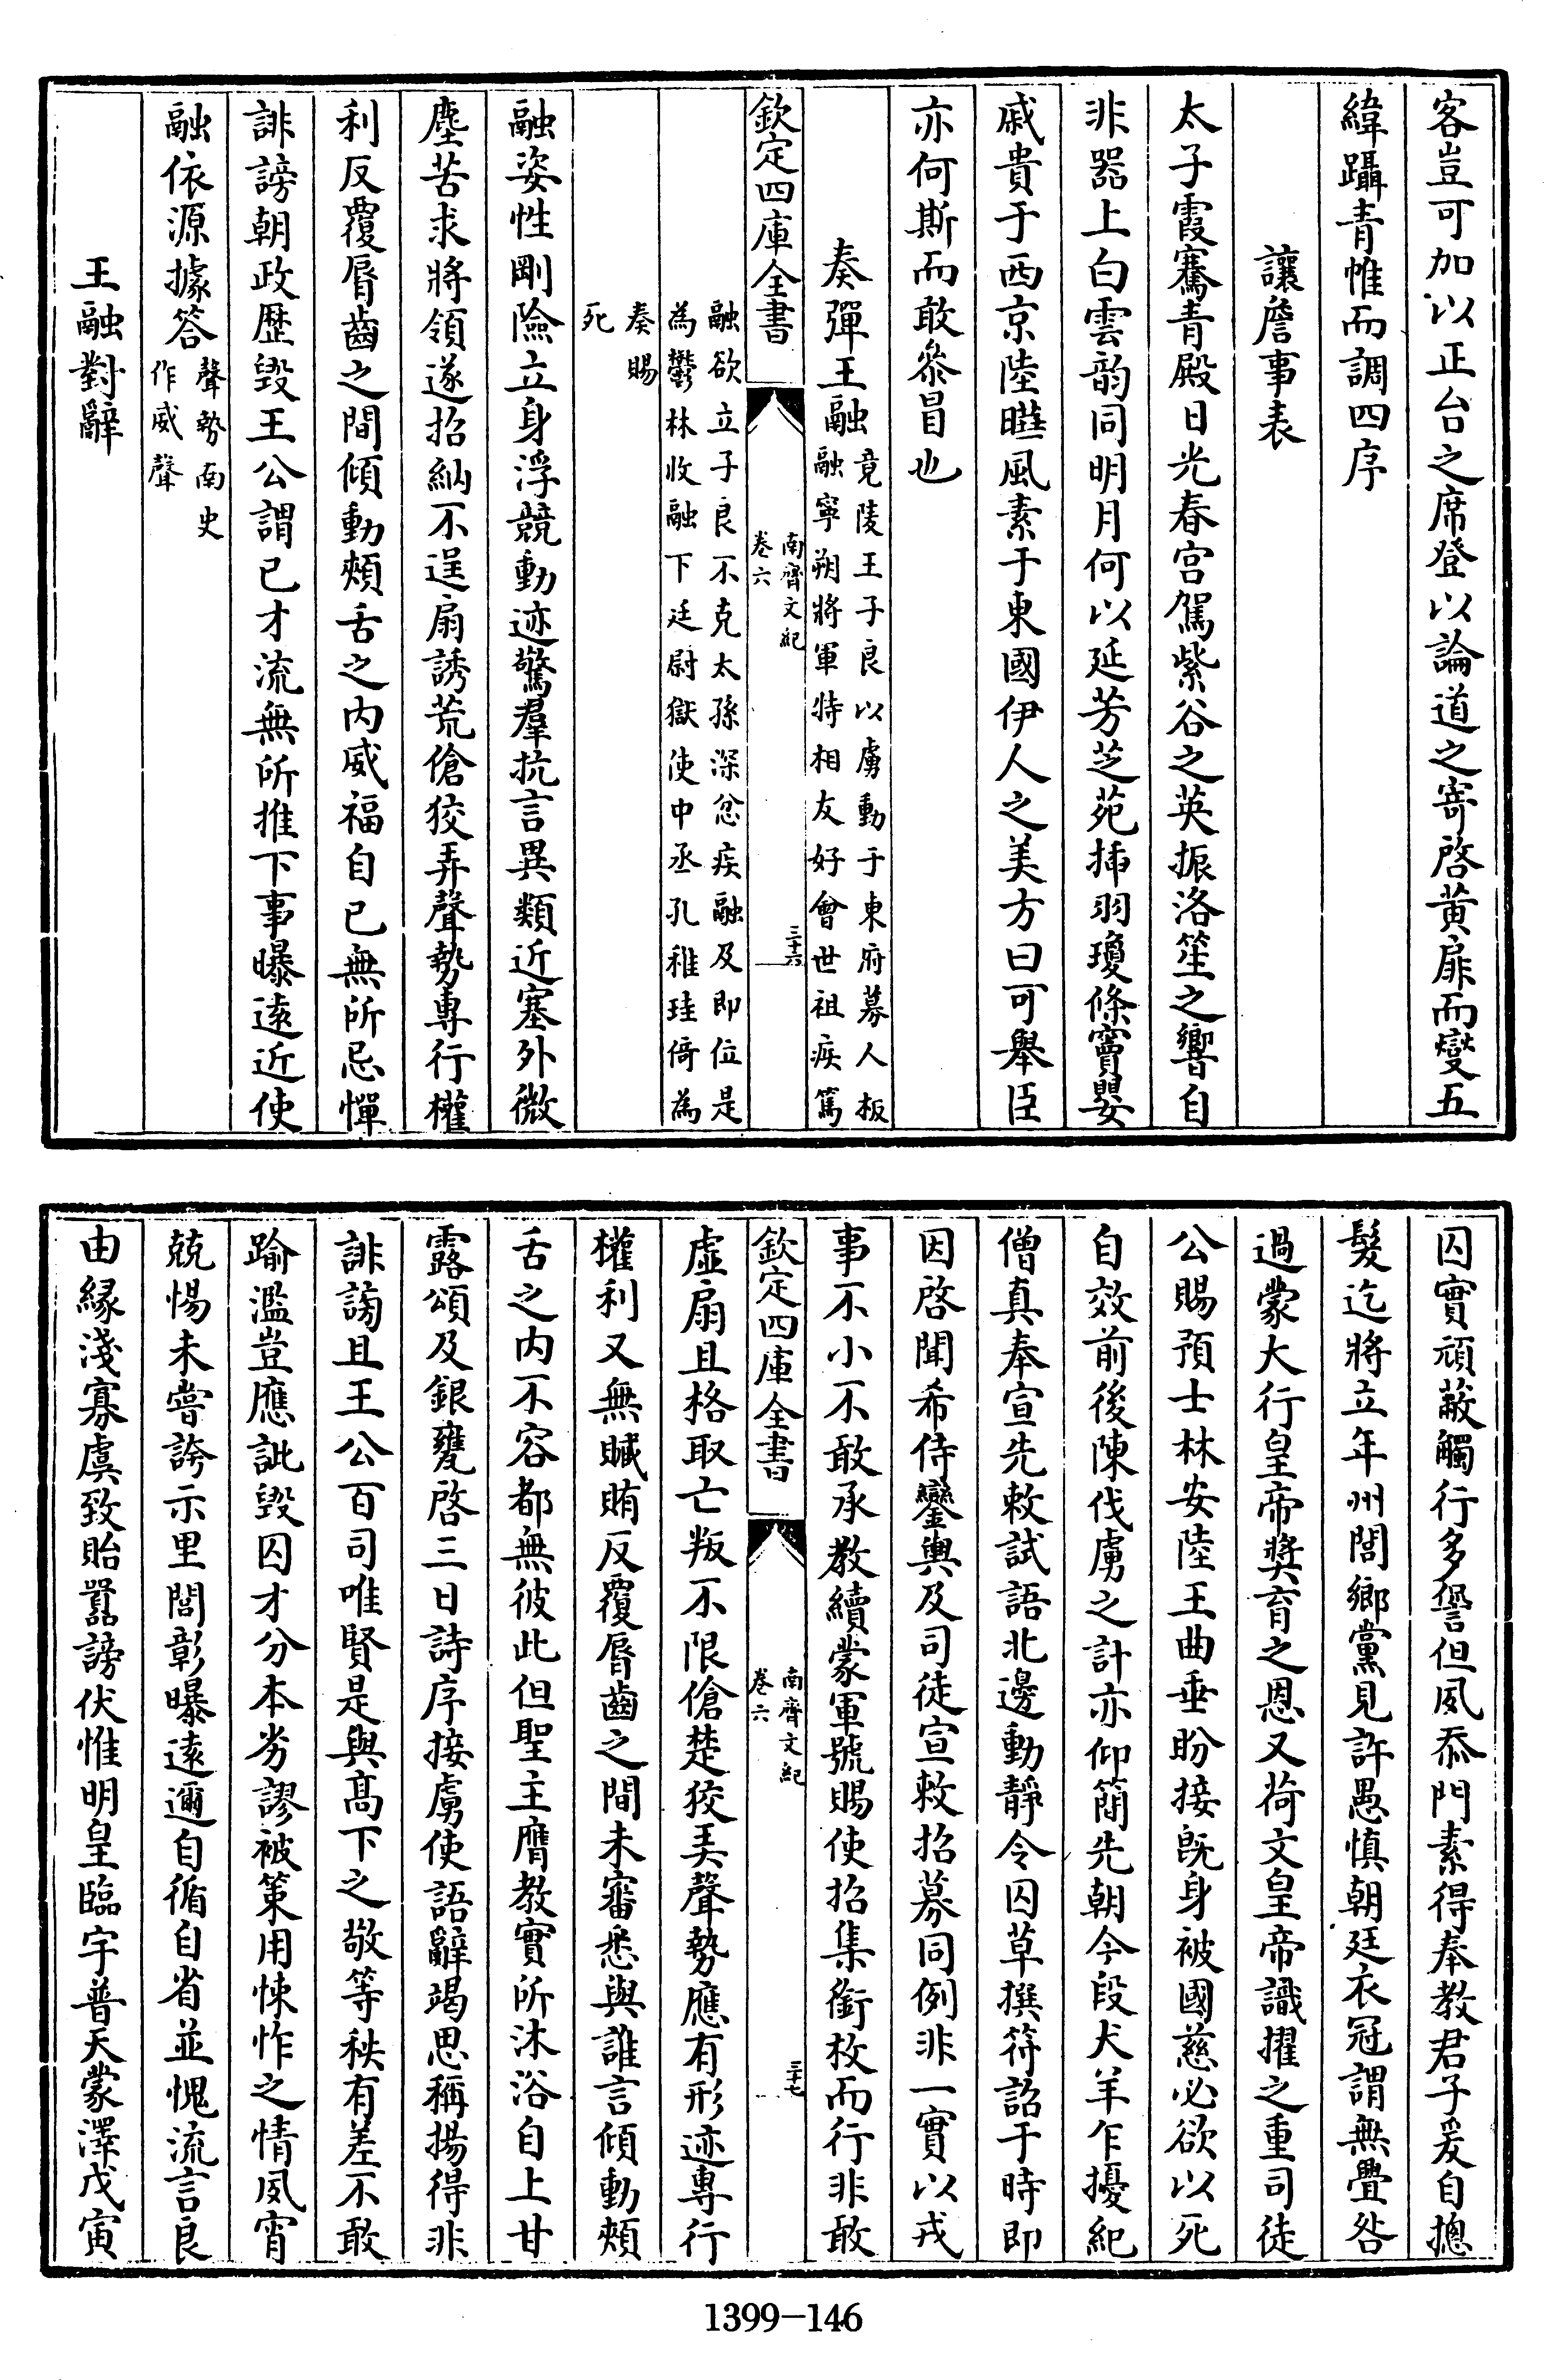 客豈可加以正台之席登以論道之寄啓黄扉而燮五
緯躡青帷而調四序
讓詹事表
太子霞騫青殿日光春宫駕紫谷之英振洛笙之響自
非器上白雲韵同明月何以延芳芝苑插羽瓊條竇嬰
戚貴于西京陸曄風素于東國伊人之美方曰可舉臣
亦何斯而敢叅冒也
奏彈王融竟陵王子良以虜動于東府募人板
融寧朔將軍特相友好會世祖疾篤
欽定四庫全書
南齊文紀
卷六
三十六
融欲立子良不克太孫深忿疾融及即位是
為鬱林收融下廷尉獄使中丞孔稚珪倚為
奏賜
死
融姿性剛險立身浮競動迹驚羣抗言異類近塞外微
塵苦求將領遂招納不逞扇誘荒傖狡弄聲勢專行權
利反覆脣齒之間傾動頰舌之内威福自已無所忌憚
誹謗朝政歴毀王公謂已才流無所推下事曝逺近使
融依源據答聲勢南史
作威聲
王融對辭
囚實頑蔽觸行多諐但夙忝門素得奉教君子爰自摠
髮迄將立年州閭鄉黨見許愚慎朝廷衣冠謂無釁咎
過蒙大行皇帝奬育之恩又荷文皇帝識擢之重司徒
公賜預士林安陸王曲垂盼接既身被國慈必欲以死
自效前後陳伐虜之計亦仰簡先朝今段犬羊乍擾紀
僧真奉宣先敕試語北邊動靜令囚草撰符詔于時即
因啓聞希侍鑾輿及司徒宣敕招募同例非一實以戎
事不小不敢承教續蒙軍號賜使招集銜枚而行非敢
欽定四庫全書
南齊文紀
卷六
三十七
虚扇且格取亡叛不限傖楚狡美聲勢應有形迹專行
權利又無贓賄反覆脣齒之間未審悉與誰言傾動頰
舌之内不容都無彼此但聖主膺教實所沐浴自上甘
露頌及銀甕啓三日詩序接虜使語辭竭思稱揚得非
誹謗且王公百司唯賢是與髙下之敬等秩有差不敢
踰濫豈應訿毀囚才分本劣謬被策用悚怍之情夙宵
兢惕未嘗誇示里閭彰曝逺邇自循自省並愧流言良
由縁淺寡虞致貽囂謗伏惟明皇臨宇普天蒙澤戊寅
1399-146